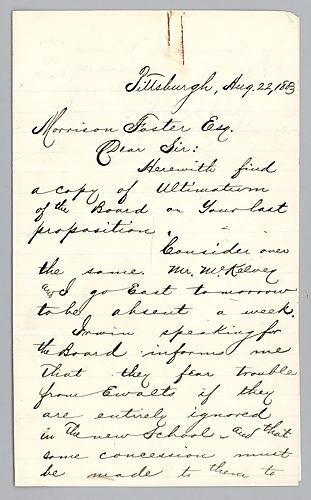 Pittsburgh, Aug. 22, 1883
Morrison Foster Esq.
Dear Sir:
Herewith find
a copy of Ultimatum
of the Board on Your last
proposition.
Consider over
the same. Mr. McKelvey
and I go East tomorrow
to be absent a week.
Irwin speaking for
the Board informs me
that they fear trouble
from Ewalts if they
are entirely ignored
in the new School - and that
some concession must
be made to them to